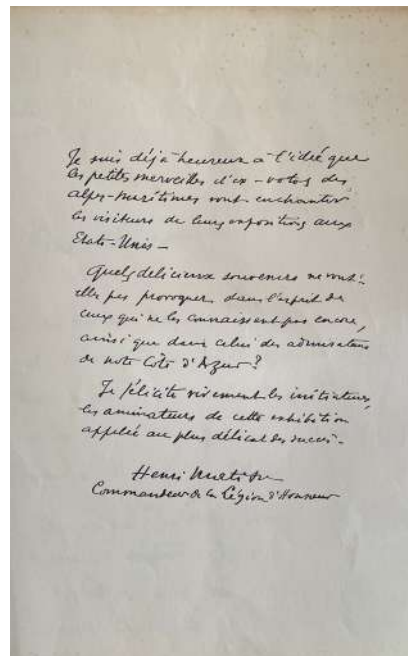 Je suis déjà heureux à l'idée que
les petites merveilles d'ex-votos des
alpes-maritimes vont enchanter
les visiteurs de leurs expositions aux
Etats-Unis -
Quels délicieux souvenirs ne vont-
elles pas provoquer dans l'esprit de
ceux qui ne les connaissent pas encore,
ainsi que dans celui des admirateurs
de notre Côte d'Azur ?
Je félicite vivement les instituteurs,
les animateurs de cette exhibition
appelée au plus délicat des succès -
Henri Matisse
Commandeur de la Légion d'Honneur